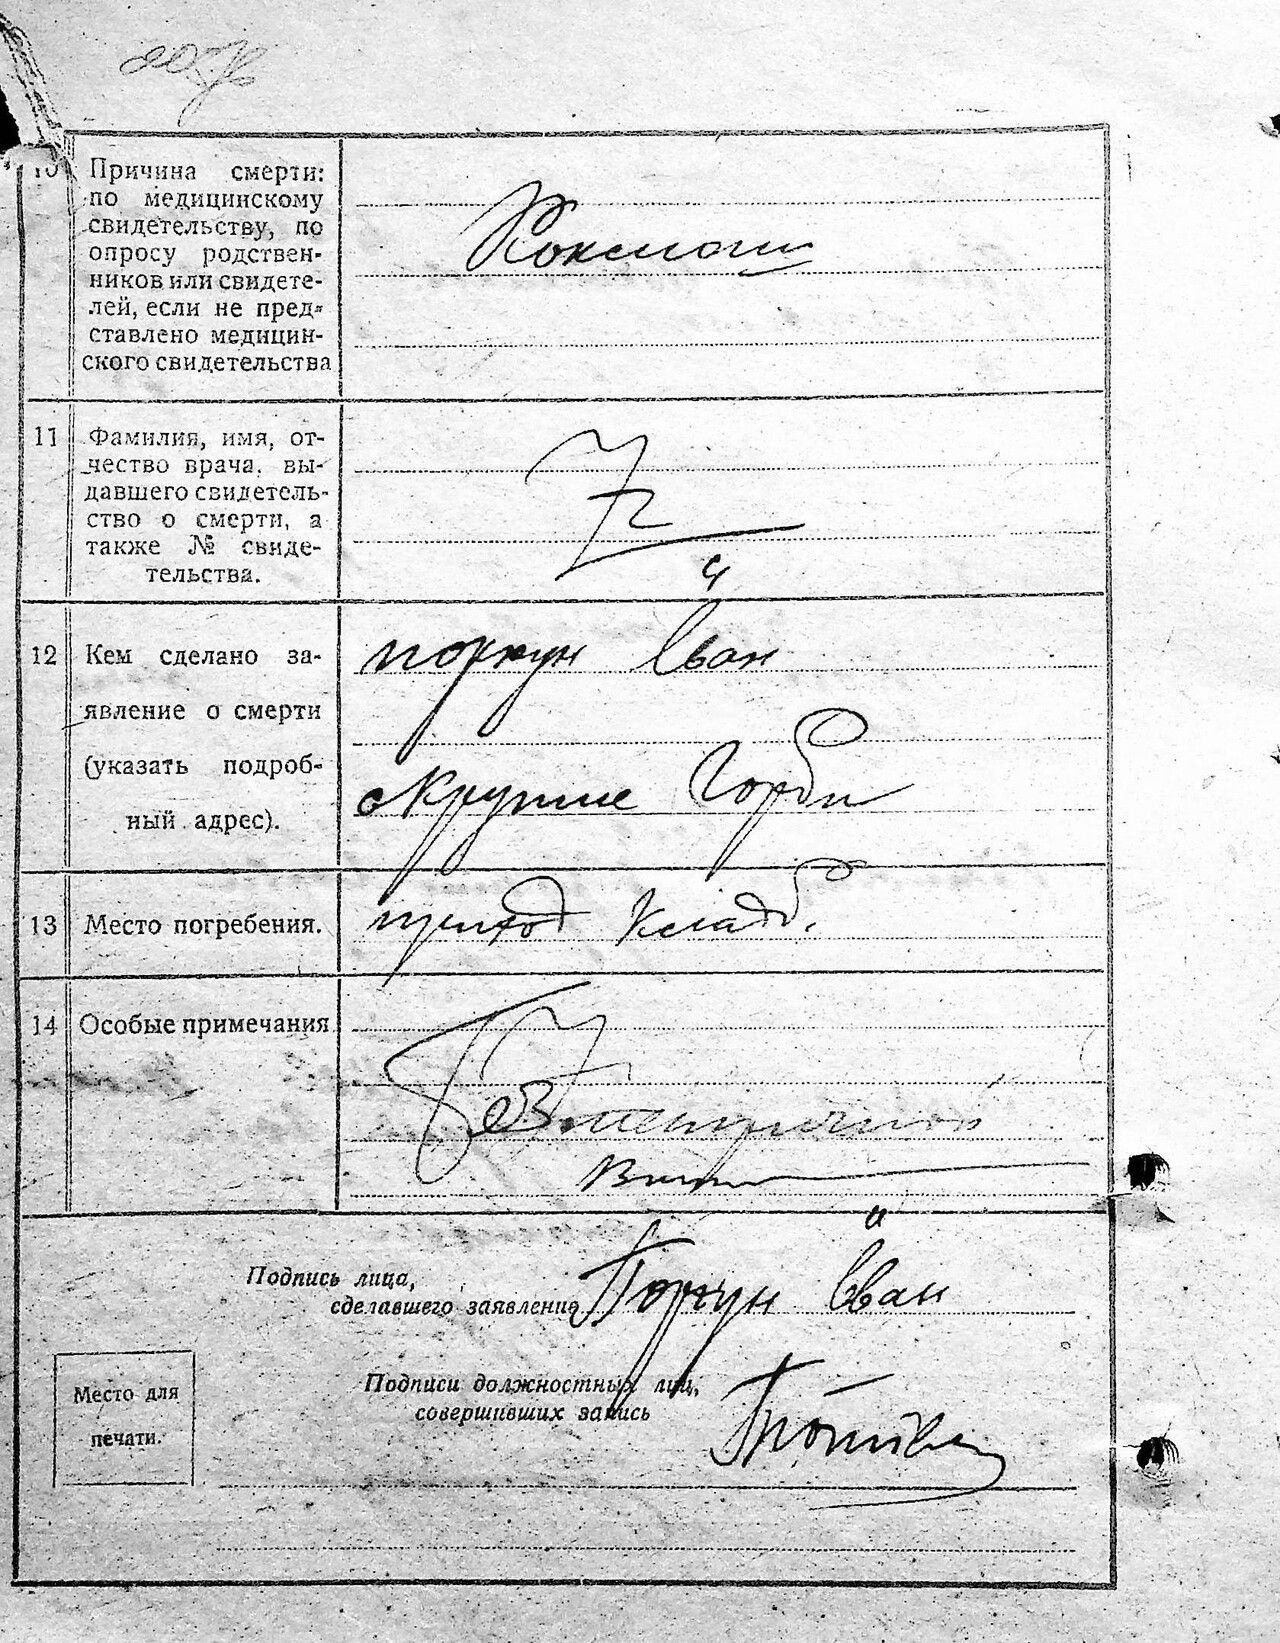 10 Причина смерти:
по медицинскому
свидетельству, по
опросу родствен-
ников или свидете-
лей, если не пред-
ставлено медицин-
ского свидетельства
Коклюш
11 Фамилия, имя, от-
чество врача, вы-
давшего свидетель-
ство о смерти, а
также № свиде-
тельства.
Z
12 Кем сделано за-
явление о смерти
(указать подроб-
ный адрес).
Иван
с Крутые Горби
13 Место погребения.
приход кладб.
14 Особые примечания
Z
Без
Подпись лица,
сделавшего заявление
Иван
Подписи должностных лиц,
совершивших запись
Место для
печати.